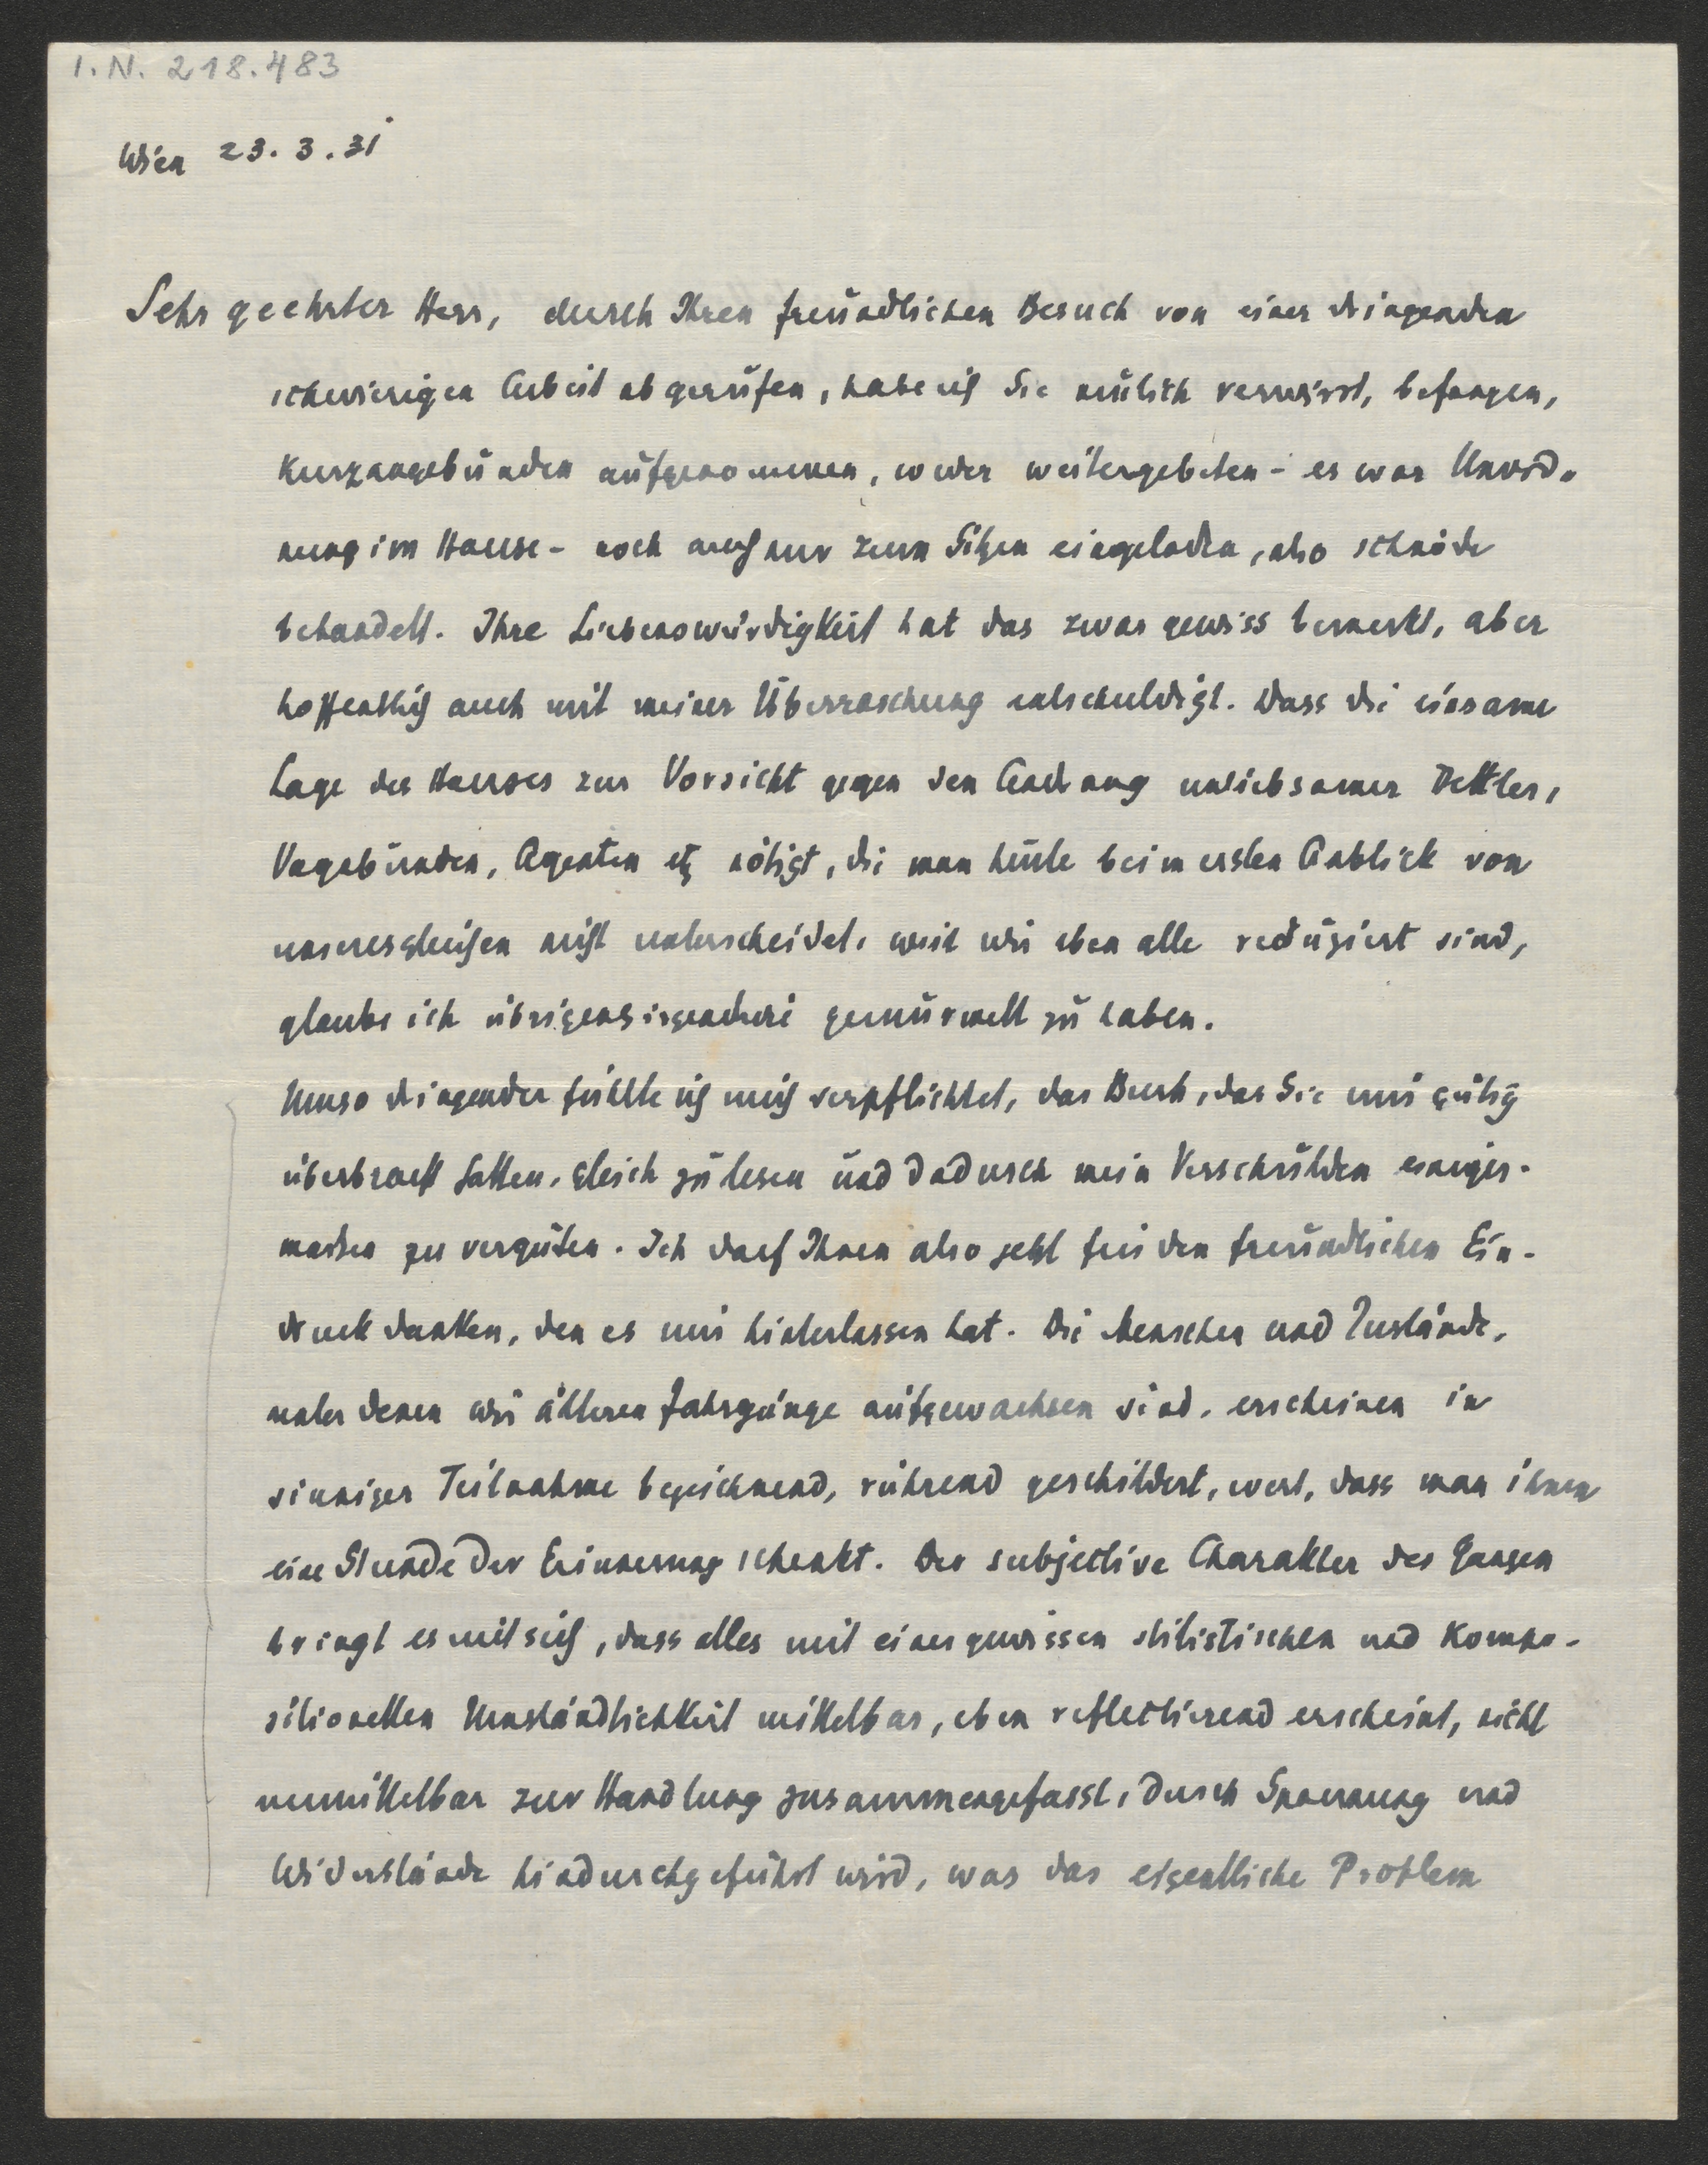 I. N. 218.483
Wien 23.3.31
Sehr geehrter Herr, durch Ihren freundlichen Besuch von einer dringenden
schwierigen Arbeit abgerufen, habe ich Sie neulich verwirrt, befangen,
kurzangebunden aufgenommen, weder weitergebeten - es war Unord-
nung im Hause - noch auch nur zum Sitzen eingeladen, also schnöde
behandelt. Ihre Liebenswürdigkeit hat das zwar gewiss bemerkt, aber
hoffentlich auch mit meiner Überraschung entschuldigt. Dass die einsame
Lage des Hauses zur Vorsicht gegen den Andrang unliebsamer Bettler,
Vagabunden, Agenten etz nötigt, die man heute beim ersten Anblick von
unseresgleichen nicht unterscheidet, weil wir eben alle reduziert sind,
glaube ich übrigens irgendwie gemurmelt zu haben.
Umso dringender fühlte ich mich verpflichtet, das Buch, das Sie mir gütig
überbracht hatten, gleich zu lesen und dadurch mein Verschulden einiger-
massen zu vergüten. Ich darf Ihnen also jetzt für den freundlichen Ein-
druck danken, den es mir hinterlassen hat. Die Menschen und Zustände,
unter denen wir älteren Jahrgänge aufgewachsen sind, erscheinen in
sinniger Teilnahme bezeichnend, rührend geschildert, wert, dass man ihnen
eine Stunde der Erinnerung schenkt. Der subjective Charakter des Ganzen
bringt es mit sich, dass alles mit einer gewissen stilistischen und kompo-
sitionellen Umständlichkeit mittelbar, eben reflectierend erscheint, nicht
unmittelbar zur Handlung zusammengefasst, durch Spannung und
Widerstände hindurchgeführt wird, was das eigentliche Problem